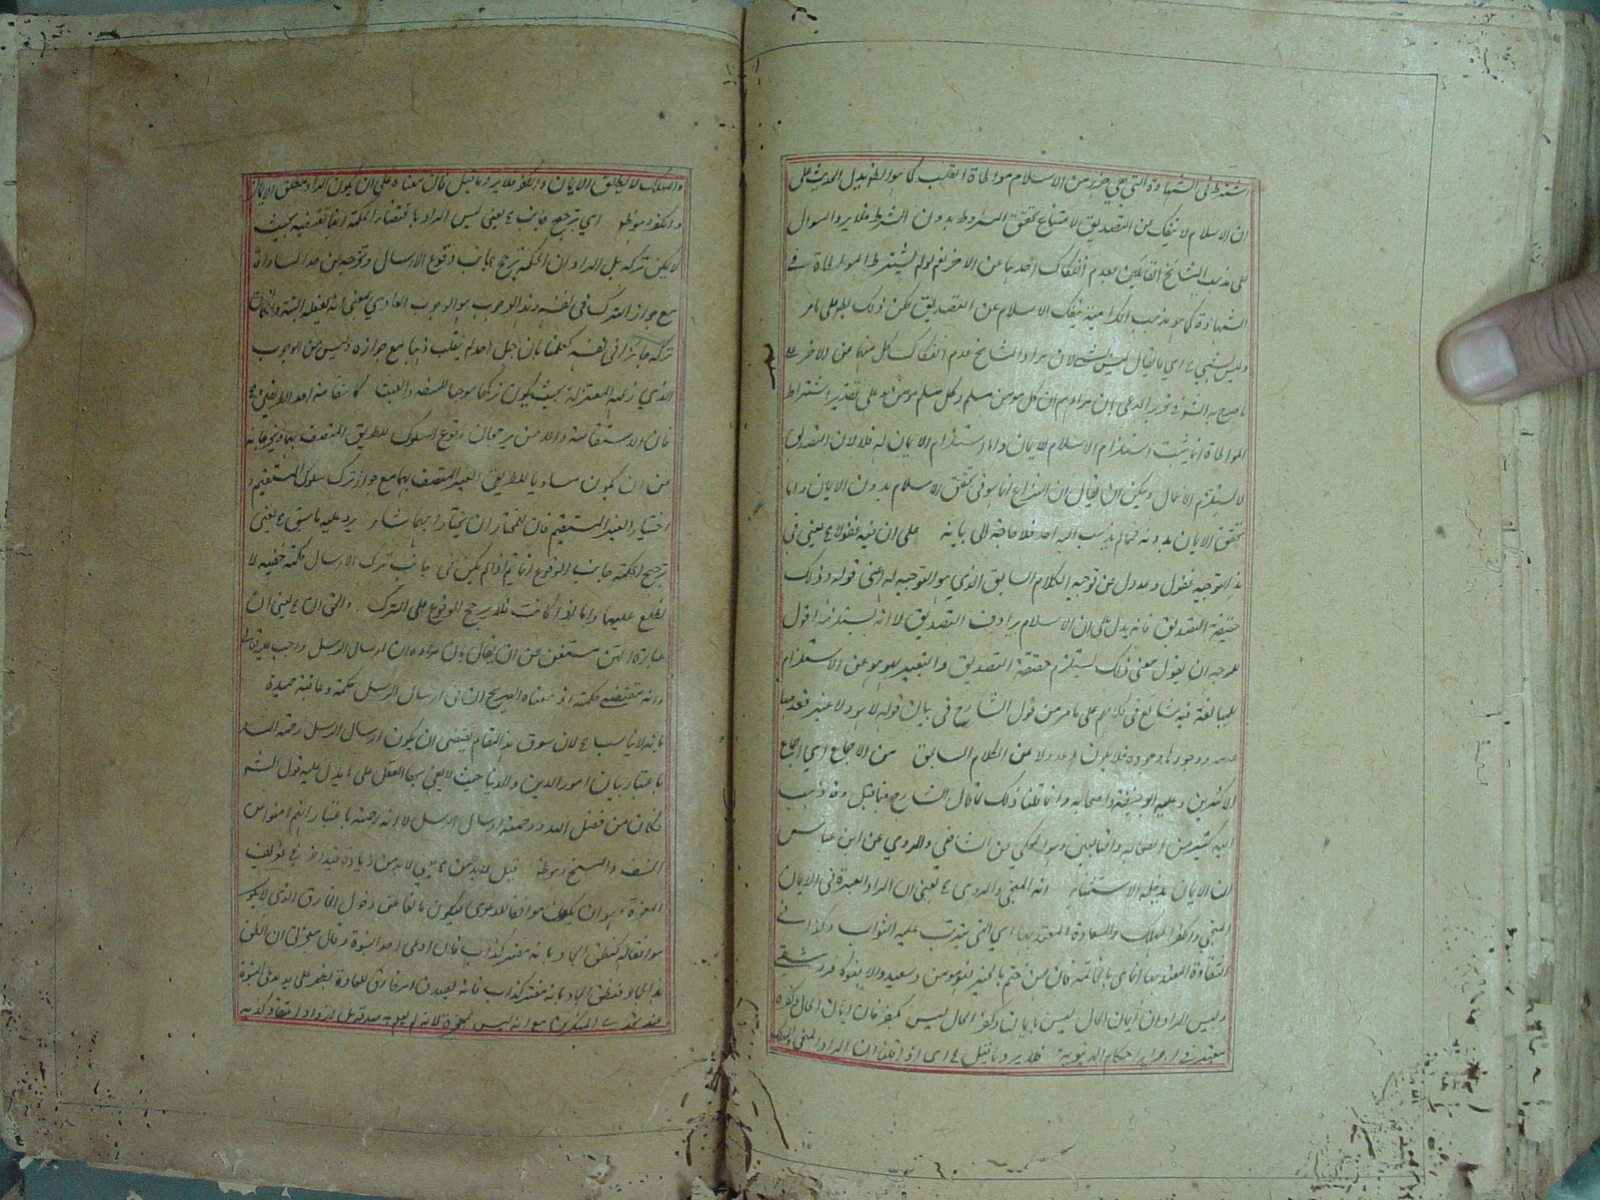 يشترط في الشهادة التي هي جزء من الاسلام مواطاة القلب كما هو الظ يدل الحديث على
ان الاسلام لا ينفك عن التصديق لامتناع تحقق المشروط بدون الشرط فلا يرد السوال
على مذهب المشايخ القائلين بعدم انفكاك احدهما عن الاخر نعم لو لم يشترط المواطاة في
الشهادة كما هو مذهب الكرامية ينفك الاسلام عن التصديق لكن ذلك بط على ما مر
وليس بشيء اي ما يقال ليس بشيء لان مراد المشايخ عدم انفكاك كل منهما من الاخر
ان مرادهم ان كل مؤمن مسلم وكل مسلم مؤمن على تقدير اشتراط
المواطاة انما يثبت استلزام الاسلام للايمان واما استلزام الايمان له فلا لان التصديق
لا يستلزم الاعمال ويمكن ان يقال ان النزاع انما هو في تحقق الاسلام بدون الايمان واما
تحقق الايمان بدونه فمما لم يذهب اليه احد فلا حاجة الى بيانه على ان فيه غفولا يعني في
هذا التوجيه غفول وعدول عن توجيه الكلام السابق الذي هو التوجيه له اعني قوله وذلك
حقيقة التصديق فانه يدل على ان الاسلام يرادف التصديق لا انه يستلزمه اقول
للموجه ان يقول معنى ذلك يستلزم حقيقة التصديق والتعبير عن الاستلزام
للمبالغة فيه شايع في كلامهم على ما مر من قول الشارح في بيان قوله لا هو ولا غيره فعدمها
عدمه ووجودها وجوده فلا يكون عدولا عن الكلام السابق من الاجماع اي اجماع
الاكثرين وعليه ابو حنيفة واصحابه وانما قلنا ذلك لما قال الشارح فيما قبل وقد ذهب
اليه كثير من الصحابة والتابعين وهو المحكي عن الشافعي والمروي عن ابن عباس
ان الايمان يدخله الاستثناء انه المنجي والمردي يعني ان المراد العبرة في الايمان
المنجي والكفر المهلك والسعادة المعتد بها اي التي يترتب عليه الثواب وكذا في
الشقاوة المعتد بها انما هي بالخاتمة فان من ختم بالخير فهو مؤمن وسعيد والا فهو كافر وشقي
وليس المراد ان ايمان الحال ليس بايمان وكفر الحال ليس بكفر فان ايمان الحال وكفره
معتبر في اجراء احكام الدنيوية فلا يرد ما قيل اي اذا قلنا ان المراد المنجي والمهلك
والمهلك لا مطلق الايمان والكفر فلا يرد ما قيل فان معناه على ان يكون المراد مطلق الايمان
والكفر وهو ظ اي ترجح جانب يعني ليس المراد باقتضاء الحكمة انها تقتضيه بحيث
لا يمكن تركه بل المراد ان الحكمة ترجح جانب وقوع الارسال وتخرجه عن حد المساواة
مع جواز الترك في نفسه وهذا الوجوب هو الوجوب العادي بمعنى انه يفعله البتة وان كان
تركه جائزا في نفسه كعلمنا بان جبل احد لم ينقلب ذهبا مع جوازه وليس من الوجوب
الذي زعمه المعتزلة بحيث يكون تركه موجبا للسفه والعبث كاستقامة احد الطريقين
فان والاستقامة والامن يرجحان وقوع السلوك للطريق المتصف بهما ويخرجانه
عن ان يكون مساويا للطريق الغير المتصف بهما مع جواز ترك سلوك المستقيم و
اختيار الغير المستقيم فان للمختار ان يختار ايهما شاء يرد عليه ما سبق يعني
ترجيح الحكمة جانب الوقوع انما يتم اذا لم يكن في جانب ترك الارسال حكمة خفية لا
نطلع عليها واما اذا كانت فلا يرجح الوقوع على الترك والحق ان يعني ان
عبارة المتن مستغن عن ان يقال بان مراده ان ارسال الرسل واجب عليه تعالى
وانه تقتضيه حكمته اذ معناه الصريح ان في ارسال الرسل حكمة وعاقبة حميدة
لان سوق هذا المقام يقتضي ان يكون ارسال الرسل رحمة
باعتبار بيان امور الدين والدنيا حيث لا يفي بها العقل على ما يدل عليه قول الش
فكان من فضل الله ورحمته ارسال الرسل لا انه رحمة باعتبار انهم امنوا من
الخسف والمسخ وهو ظ قيل لا بد من يعني لا بد من زيادة قيد اخر في تعريف
المعجزة وهو ان يكون موافقا للدعوى ليكون مانعا عن دخول الخارق الذي لا يكون
موافقا له كنطق الجماد بانه مفتر كذاب فان ادعى احد النبوة وقال معجزتي ان انطق
هذا الجماد فنطق الجماد بانه مفتر كذاب فانه يصدق امر خارق للعادة يظهر على يد مدعي النبوة
عند تحدي المنكرين مع انه ليس بمعجزة لانه لم يعلم به صدقه بل ازداد اعتقاد كذبه